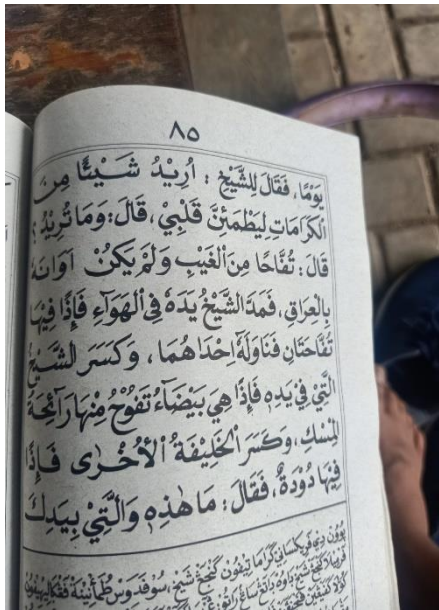 ٨٥
يَوْمًا، فَقَالَ لِلشَّيْخِ : اُرِيْدُ شَيْئًا مِنَ
الْكَرَامَاتِ لِيَطْمَئِنَّ قَلْبِيْ، قَالَ: وَمَا تُرِيْدُ ؟
قَالَ : تُفَّاحًا مِنَ الْغَيْبِ وَلَمْ يَكُنْ اَوَانُهُ
بِالْعِرَاقِ، فَمَدَّ الشَّيْخُ يَدَهُ فِى الْهَوَآءِ فَإِذًا فِيْهَا
تُفَّاحَتَانِ فَنَاوَلَهُ اِحْدَاهُمَا، وَكَسَرَ الشَّيْخُ
الَّتِيْ فِيْ يَدِهِ فَإِذًا هِيَ بَيْضَآءُ تَفُوْحُ مِنْهَا رَآئِحَةُ
الْمِسْكِ، وَكَسَرَ الْخَلِيْفَةُ الْاُخْرٰى فَإِذًا
فِيْهَا دُوْدَةٌ، فَقَالَ : مَا هٰذِهِ وَالَّتِيْ بِيَدِكَ